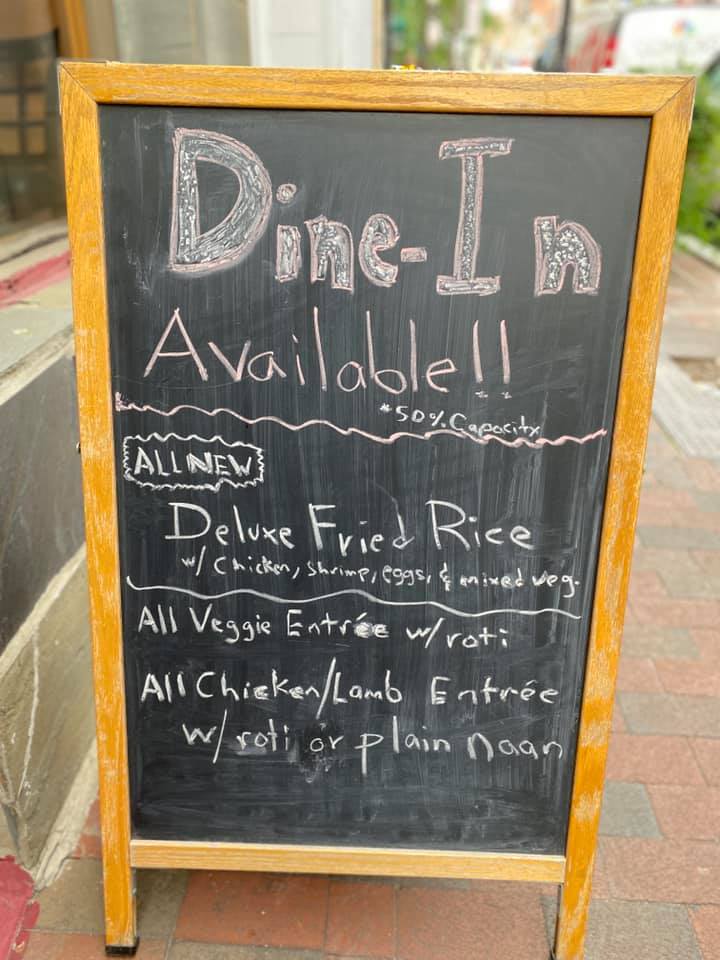 Dine-In
Available!!
*50% Capacity
ALL NEW
Deluxe Fried Rice
w/ Chicken, shrimp, eggs, & mixed veg.
All Veggie Entrée w/ roti
All Chicken/Lamb Entrée
w/ roti or plain Naan